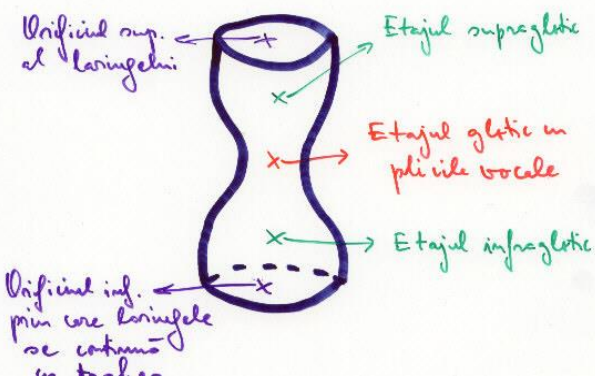 Orificiul sup.
al laringelui
Etajul supraglotic
Etajul glotic cu
plicile vocale
Etajul infraglotic
Orificiul inf.
prin care laringele
se continuă
cu trahea